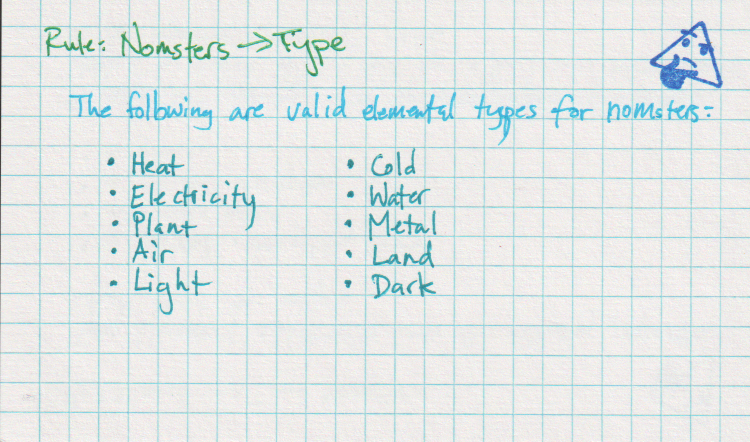 Rule: Nomsters → Type
The following are valid elemental types for nomsters:
• Heat
• Electricity
• Plant
• Air
• Light
• Cold
• Water
• Metal
• Land
• Dark